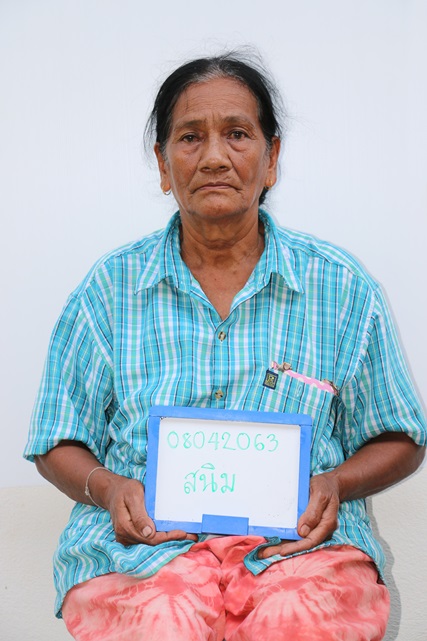 08042063
สนิม